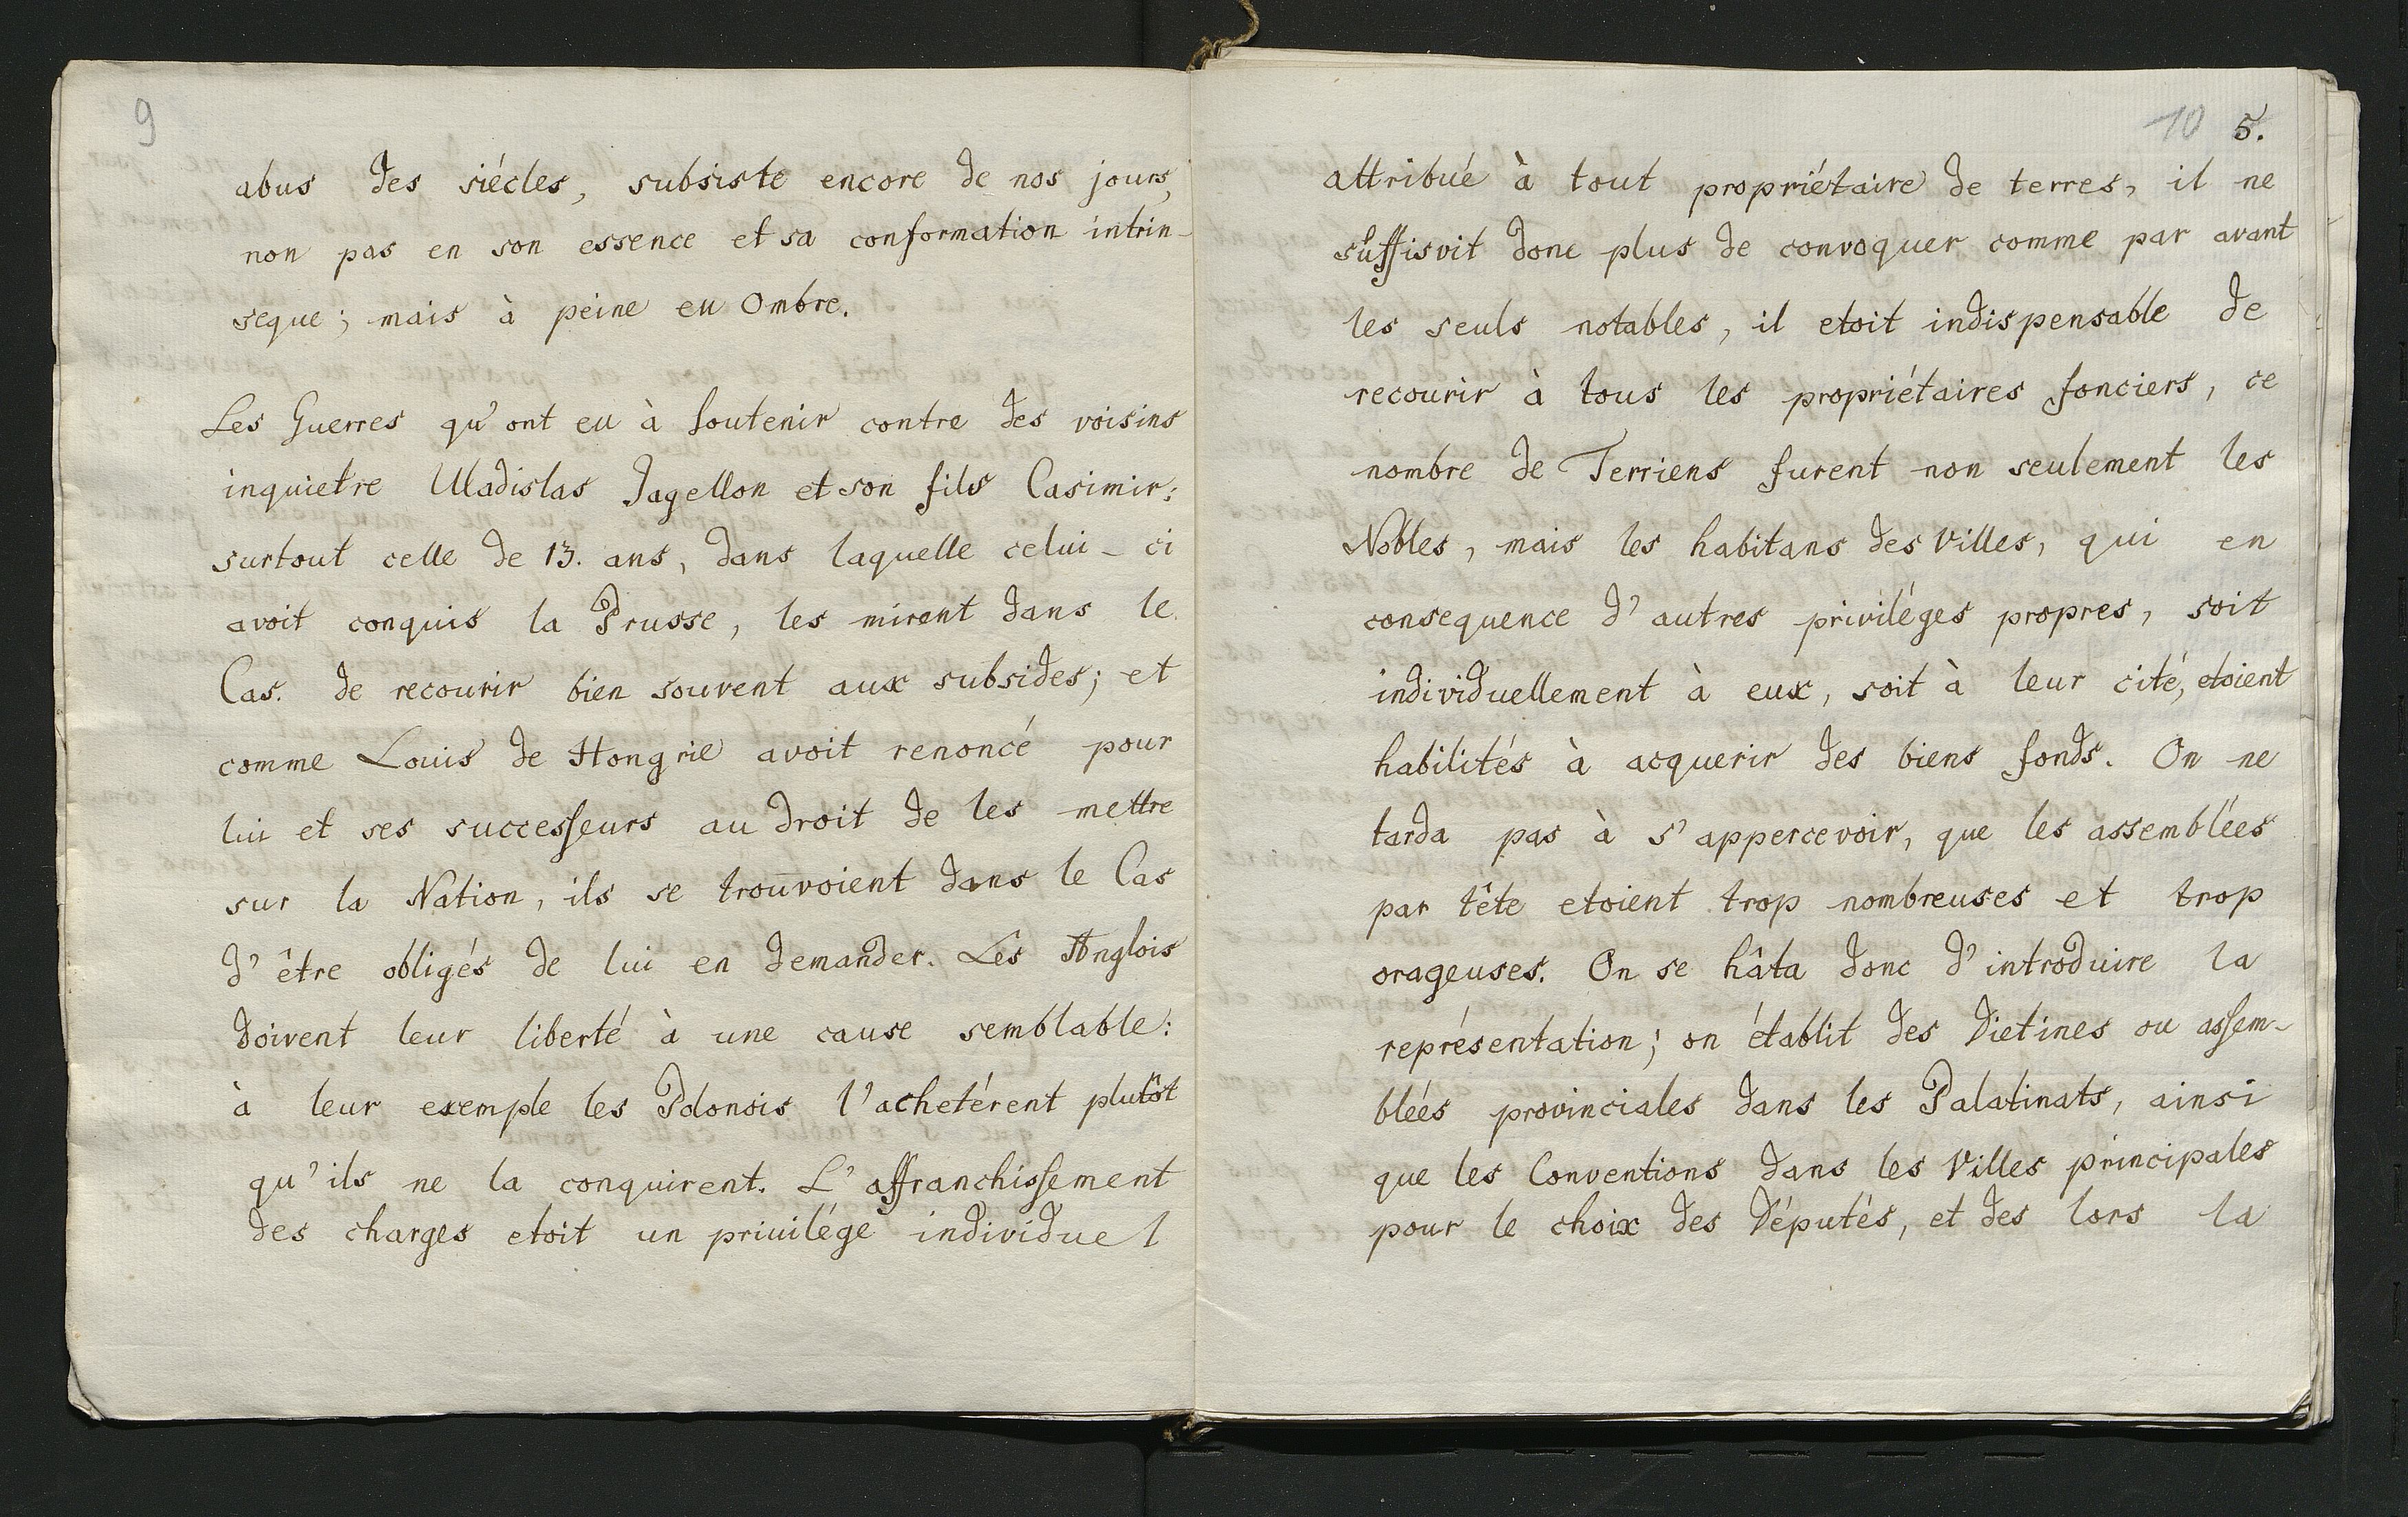 9
abus des siécles, subsiste encore de nos jours,
non pas en son essence et sa conformation intrin-
seque; mais à peine eu Ombre.
Les Guerres qu'ont eu à soutenir contre des voisins
inquietre Uladislas Jagellon et son fils Casimir:
surtout celle de 13. ans, dans laquelle celui-ci
avoit conquis la Prusse, les mirent dans le
Cas. de recourir bien souvent aux subsides; et
comme Louis de Hongrie avoit renoncé pour
lui et ses successeurs au droit de les mettre
sur la Nation, ils se trouvoient dans le Cas
d'être obligés de lui en demander. Les Anglois
doivent leur liberté à une cause semblable:
à leur exemple les Polonois l'achetérent plutôt
qu'ils ne la conquirent. L'affranchissement
des charges etoit un priuilége individuel
10 5.
attribué à tout propriétaire de terres, il ne
suffisoit donc plus de convoquer comme par avant
les seuls notables, il etoit indispensable de
recourir à tous les propriétaires fonciers, ce
nombre de Terriens furent non seulement les
Nobles, mais les habitans des Villes, qui en
consequence d'autres priviléges propres, soit
individuellement à eux, soit à leur cité, etoient
habilités à acquerir des biens fonds. On ne
tarda pas à s'appercevoir, que les assemblées
par tête etoient trop nombreuses et trop
orageuses. On se hâta donc d'introduire la
représentation; on établit des Dietines ou assem-
blées provinciales dans les Palatinats, ainsi
que les Conventions dans les Villes principales
pour le choix des Députés, et des lors la